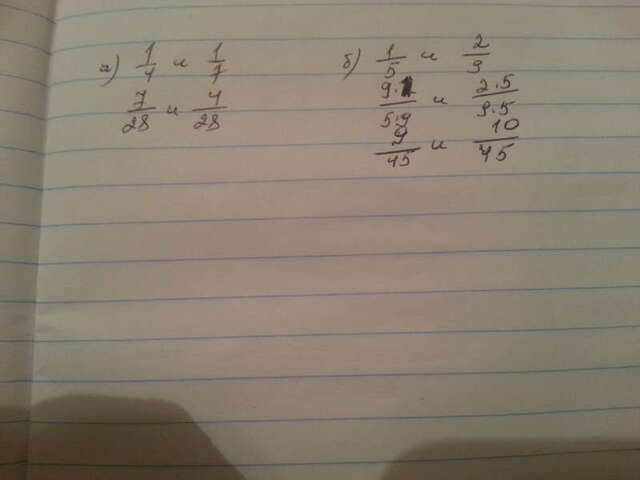 а) 1/4 и 1/7
7/28 и 4/28
б) 1/5 и 2/9
9·1/5·9 и 2·5/9·5
9/45 и 10/45